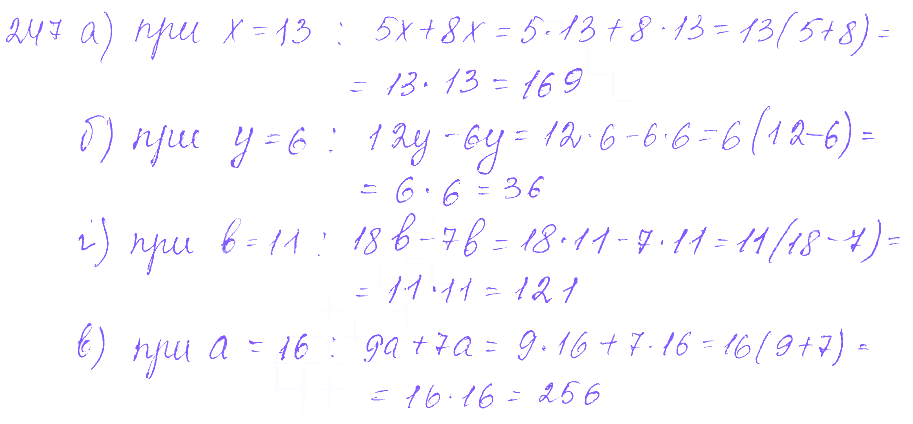 247 а) при x=13 : 5x+8x=5·13+8·13=13(5+8)=
=13·13=169
б) при y=6 : 12y-6y=12·6-6·6=6(12-6)=
=6·6=36
г) при b=11 : 18b-7b=18·11-7·11=11(18-7)=
=11·11=121
в) при a=16 : 9a+7a=9·16+7·16=16(9+7)=
=16·16=256